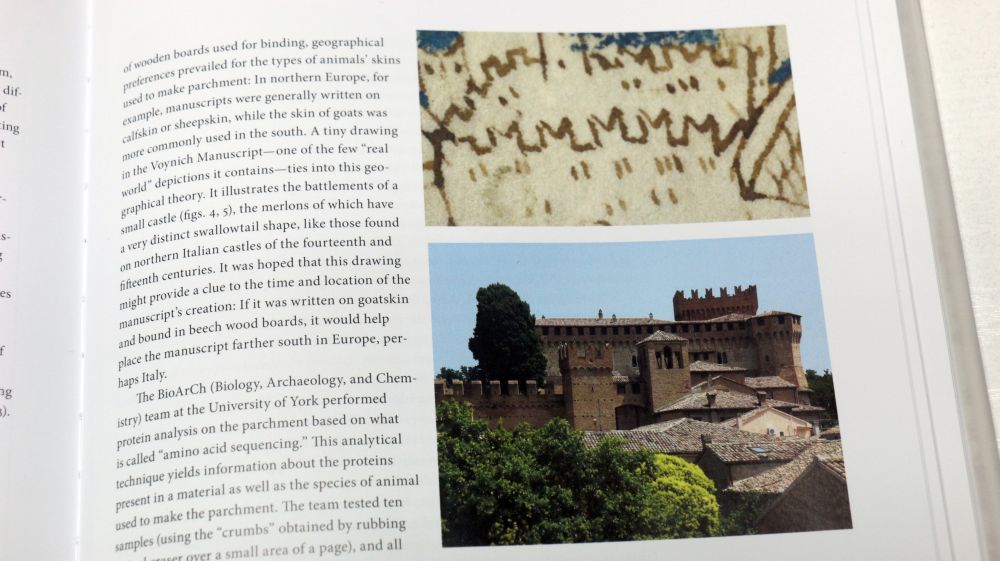 m,
dif-
of
ting
t
r-
s-
g
es
f
ng
of wooden boards used for binding, geographical
preferences prevailed for the types of animals' skins
used to make parchment: In northern Europe, for
example, manuscripts were generally written on
calfskin or sheepskin, while the skin of goats was
more commonly used in the south. A tiny drawing
in the Voynich Manuscript—one of the few “real
world” depictions it contains—ties into this geo-
graphical theory. It illustrates the battlements of a
small castle (figs. 4, 5), the merlons of which have
a very distinct swallowtail shape, like those found
on northern Italian castles of the fourteenth and
fifteenth centuries. It was hoped that this drawing
might provide a clue to the time and location of the
manuscript's creation: If it was written on goatskin
and bound in beech wood boards, it would help
place the manuscript farther south in Europe, per-
haps Italy.
The BioArCh (Biology, Archaeology, and Chem-
istry) team at the University of York performed
protein analysis on the parchment based on what
is called “amino acid sequencing.” This analytical
technique yields information about the proteins
present in a material as well as the species of animal
used to make the parchment. The team tested ten
samples (using the “crumbs” obtained by rubbing
eraser over a small area of a page), and all